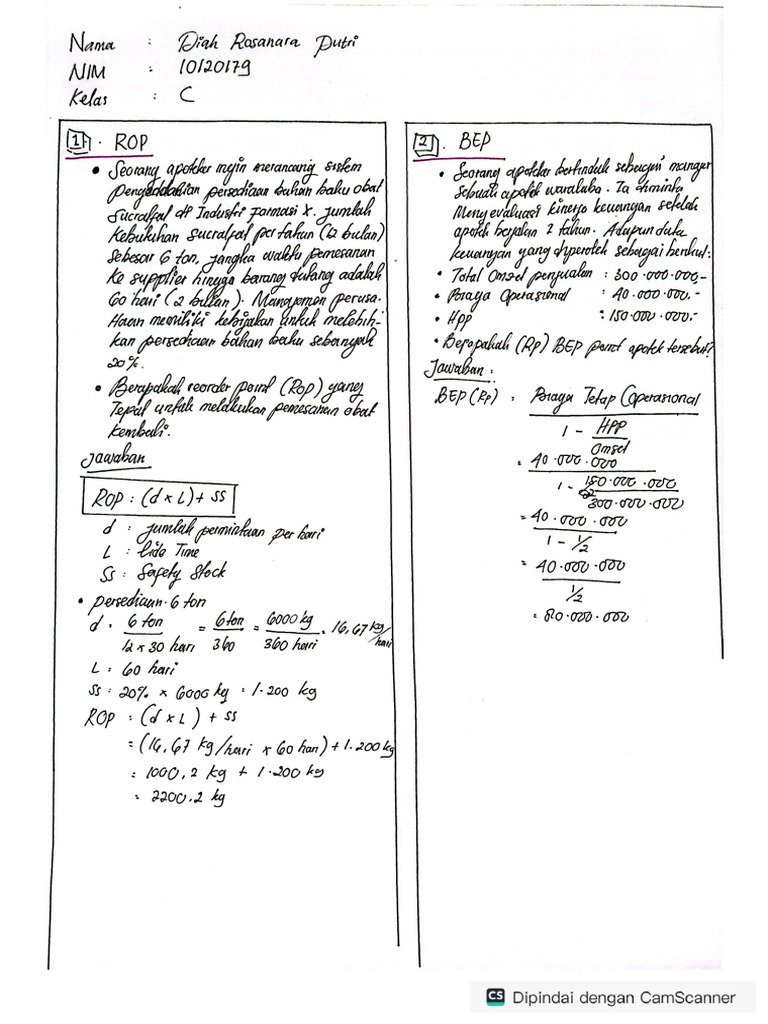 Nama : Diah Rosanara Putri
NIM : 10120179
Kelas : C
1. ROP
• Seorang apoteker ingin merancang sistem
Pengendalian persediaan bahan baku obat
Sucralfat di Industri Farmasi X. Jumlah
Kebutuhan Sucralfat per tahun (12 bulan)
sebesar 6 ton, jangka waktu pemesanan
Ke supplier hingga barang datang adalah
60 hari (2 bulan). Manajemen perusa-
Haan memiliki kebijakan untuk melebih-
kan persediaan bahan baku sebanyak
20%.
• Berapakah reorder point (ROP) yang
Tepat untuk melakukan pemesanan obat
kembali.
Jawaban
ROP : (d x L) + SS
d : Jumlah permintaan per hari
L : Lide Time
SS : Safety Stock
• Persediaan. 6 ton
d = 6 ton / 12 x 30 hari = 6 ton / 360 = 6000 kg / 360 hari = 16,67 kg/hari
L : 60 hari
SS : 20% x 6000 kg = 1.200 kg
ROP : (d x L) + SS
= (16,67 kg/hari x 60 hari) + 1.200 kg
= 1000,2 kg + 1.200 kg
= 2200,2 kg
2. BEP
• Seorang apoteker bertindak sebagai manager
sebuah apotek waralaba. Ia diminta
Mengevaluasi kinerja keuangan setelah
apotek berjalan 2 tahun. Adapun data
keuangan yang diperoleh sebagai berikut:
• Total Omset penjualan : 300.000.000,-
• Biaya Operasional : 40.000.000,-
• HPP : 150.000.000,-
• Berapakah (Rp) BEP pada apotek tersebut?
Jawaban :
BEP (Rp) : Biaya Tetap (Operasional
1 - HPP / Omset
= 40.000.000
1 - 150.000.000 / 300.000.000
= 40.000.000
1 - 1/2
= 40.000.000
1/2
= 80.000.000
CS Dipindai dengan CamScanner